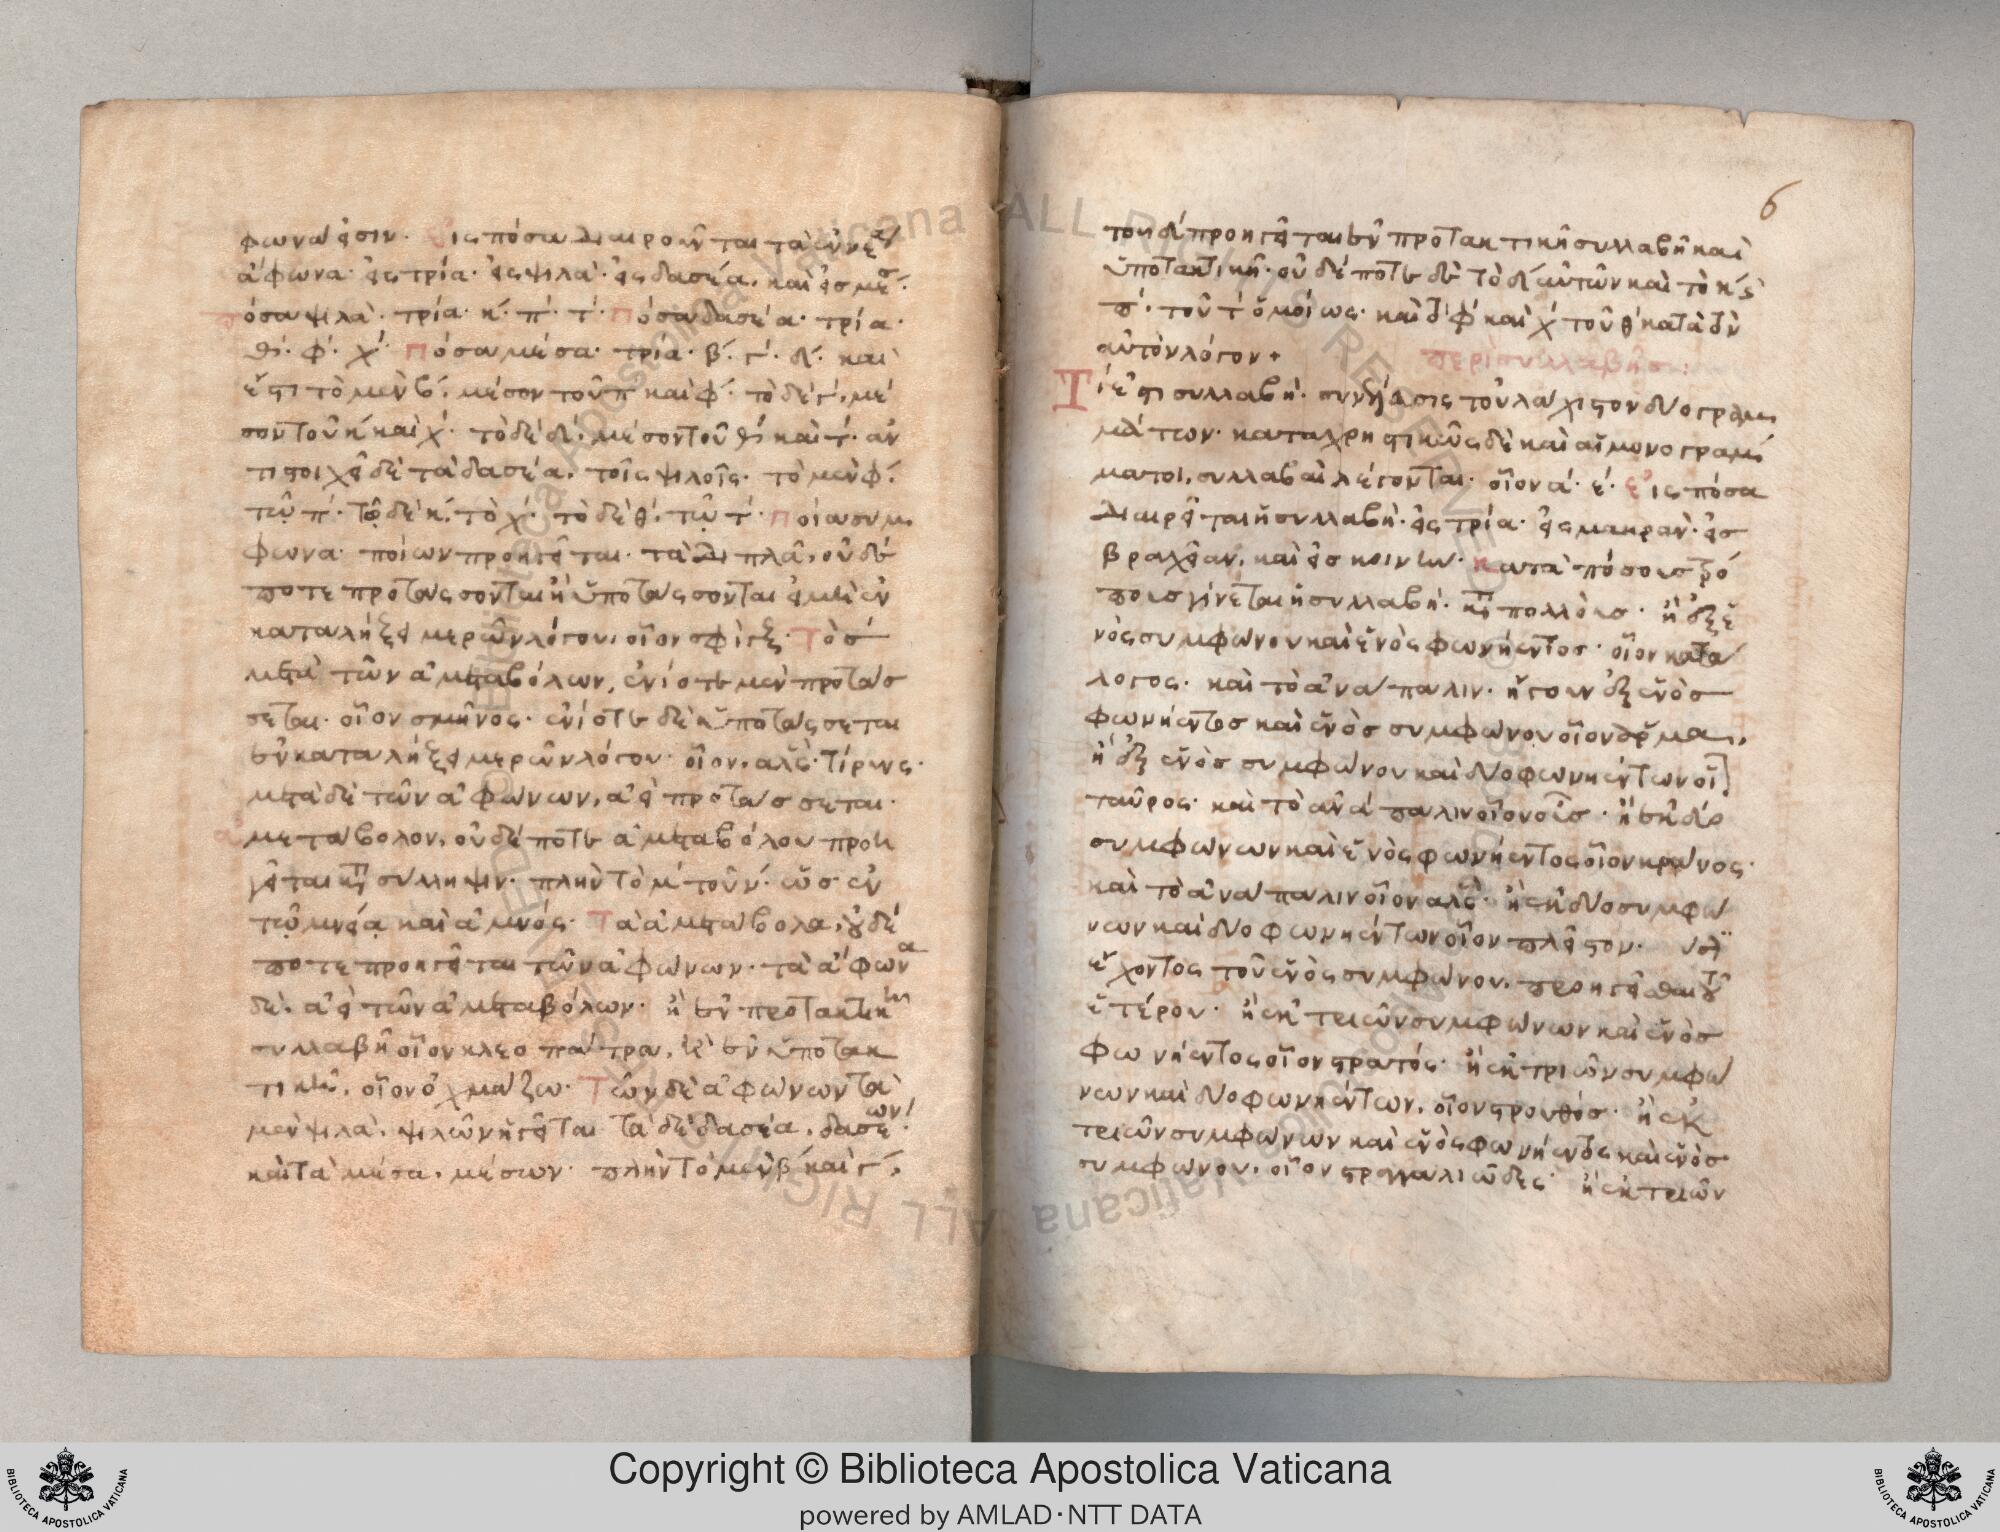 φωνά εἰσιν· εἰς πόσα διαιροῦνται τὰ ἐννέα
ἄφωνα· εἰς τρία· εἰς ψιλὰ· εἰς δασέα, καὶ εἰς μέσ·
πόσα ψιλὰ· τρία· κ· π· τ· πόσα δασέα· τρία·
θ· φ· χ· πόσα μέσα· τρία· β· γ· δ· καὶ
ἔστι τὸ μὲν β, μέσον τοῦ π καὶ φ· τὸ δὲ γ, μέ
σον τοῦ κ καὶ χ· τὸ δὲ δ, μέσον τοῦ θ καὶ τ· ἀν
τιστοιχεῖ δὲ τὰ δασέα, τοῖς ψιλοῖς· τὸ μὲν φ,
τῷ π· τῷ δὲ κ, τὸ χ· τὸ δὲ θ, τῷ τ· ποία συμ
φωνα· ποίων προηγεῖται· τὰ διπλᾶ, οὐδέ
ποτε προτάσσονται ἢ ὑποτάσσονται εἰ μὴ ἐν
καταλήξει μερῶν λόγου, οἷον σφίγξ· Τὸ σ
μετὰ τῶν ἀμεταβόλων, ἐνίοτε μὲν προτάσ
σεται· οἷον σμῆνος· ἐνίοτε δὲ ὑποτάσσεται
ἐν καταλήξει μερῶν λόγου· οἷον, ἅλς· τίρυνς·
μετὰ δὲ τῶν ἀφώνων, ἀεὶ προτάσσεται·
μεταβολον, οὐδέποτε ἀμεταβόλου προη
γεῖται κατὰ σύλληψιν· πλὴν τὸ μ τοῦ ν· ὡς ἐν
τῷ μνεία καὶ ἀμνός· Τὰ ἀμετάβολα, οὐδέ
ποτε προηγεῖται τῶν ἀφώνων· τὰ ἄφωνα
δὲ, ἀεὶ τῶν ἀμεταβόλων· ἢ ἐν προτακτικῇ
συλλαβῇ οἷον κλεοπάτρα, ἢ ἐν ὑποτακ
τικῇ, οἷον ὀχμάζω· Τῶν δὲ ἀφώνων τὰ
μὲν ψιλὰ, ψιλῶν ἡγεῖται τὰ δὲ δασέα, δασέων·
καὶ τὰ μέσα, μέσων· πλὴν τὸ μὲν β καὶ γ,
6
τοῦ δ προηγεῖται ἐν προτακτικῇ συλλαβῇ καὶ
ὑποτακτικῇ· οὐδέποτε δὲ τὸ δ αὐτῶν καὶ τὸ κ καὶ
π· τοῦ τ ὁμοίως· καὶ τὸ φ καὶ χ τοῦ θ κατὰ τὸν
αὐτὸν λόγον+ περὶ συλλαβῆς:
Τί ἐστι συλλαβή· σύνθεσις τοὐλάχιστον δύο γραμ
μάτων· καταχρηστικῶς δὲ καὶ αἱ μονογράμ
ματοι, συλλαβαὶ λέγονται· οἷον α· ε· εἰς πόσα
διαιρεῖται ἡ συλλαβή· εἰς τρία· εἰς μακρὰν· εἰς
βραχεῖαν, καὶ εἰς κοινήν· κατὰ πόσους τρό
πους γίνεται ἡ συλλαβή· κατὰ πολλοὺς· ἢ ἐξ ἑ
νὸς συμφώνου καὶ ἑνὸς φωνήεντος· οἷον κατά
λογος· καὶ τὸ ἀνάπαλιν· ἤγουν ἐξ ἑνὸς
φωνήεντος καὶ ἑνὸς συμφώνου οἷον ἅρμα,
ἢ ἐξ ἑνὸς συμφώνου καὶ δύο φωνηέντων οἷον
ταῦρος· καὶ τὸ ἀνάπαλιν οἷον εἷς· ἢ ἐκ δύο
συμφώνων καὶ ἑνὸς φωνήεντος οἷον κράνος·
καὶ τὸ ἀνάπαλιν οἷον ἅλς· ἢ ἐκ δύο συμφώ
νων καὶ δύο φωνηέντων οἷον πλεῖστον·
ἔχοντος τοῦ ἑνὸς συμφώνου, προηγεῖσθαι τοῦ
ἑτέρου· ἢ ἐκ τριῶν συμφώνων καὶ ἑνὸς
φωνήεντος οἷον στρατός· ἢ ἐκ τριῶν συμφώ
νων καὶ δύο φωνηέντων, οἷον στρουθός· ἢ ἐκ
τριῶν συμφώνων καὶ ἑνὸς φωνήεντος καὶ ἑνὸς
συμφώνου, οἷον στραγγαλιῶδες· ἢ ἐκ τριῶν
Copyright © Biblioteca Apostolica Vaticana
powered by AMLAD·NTT DATA
BIBLIOTECA APOSTOLICA VATICANA
BIBLIOTECA APOSTOLICA VATICANA